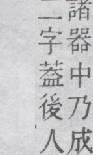 諸器中乃成
二字葢後人